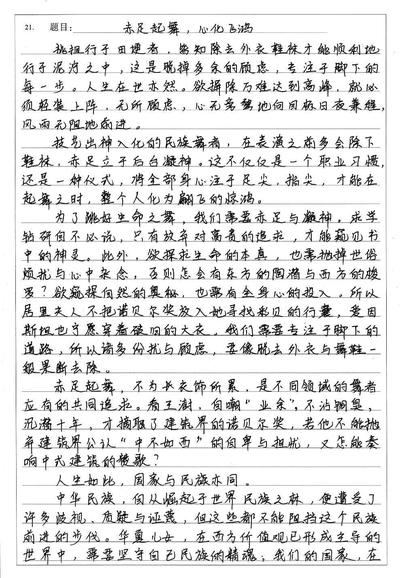 21. 题目：赤足起舞，心化飞鸿
挑担行于田埂者，皆知除去外衣鞋袜才能顺利地
行于泥泞之中，这是脱掉多余的顾虑，专注于脚下的
每一步。人生在世亦然。欲摒除万难达到高峰，就必
须轻装上阵，无所顾虑，心无旁骛地向目标日夜兼程，
风雨无阻地前进。
技艺出神入化的民族舞者，在表演之前多会除下
鞋袜，赤足立于后台凝神。这不仅仅是一个职业习惯，
还是一种仪式，将全部身心注于足尖，指尖，才能在
起舞之时，整个人化为翩飞的惊鸿。
为了跳好生命之舞，我们需要赤足与凝神。求学
钻研自不必说，只有放弃对富贵的追求，才能窥见书
中的神灵。此外，欲探求生命的本真，也需抛掉世俗
烦扰与心中杂念，否则怎会有东方的陶潜与西方的梭
罗？欲窥探自然的奥秘，也需有全身心的投入。所以
居里夫人不把诺贝尔奖放入她寻找彩贝的行囊，爱因
斯坦也宁愿穿着破旧的大衣。我们需要专注于脚下的
道路，所以诸多纷扰与顾虑，要像脱去外衣与舞鞋一
般果断去除。
赤足起舞，不为长衣饰所累，是不同领域的舞者
应有的共同追求。看王澍，自嘲“业余”，不沾铜臭，
沉潜十年，才摘取了建筑界的诺贝尔奖，若他不能抛
弃建筑界公认“中不如西”的自卑与担忧，又怎能奏
响中式建筑的赞歌？
人生如此，国家与民族亦同。
中华民族，自从崛起于世界民族之林，便遭受了
许多歧视、质疑与诬蔑，但这些都不能阻挡这个民族
前进的步伐。华夏儿女，在西方价值观已形成主导的
世界中，需要坚守自己民族的精魂；我们的国家，在